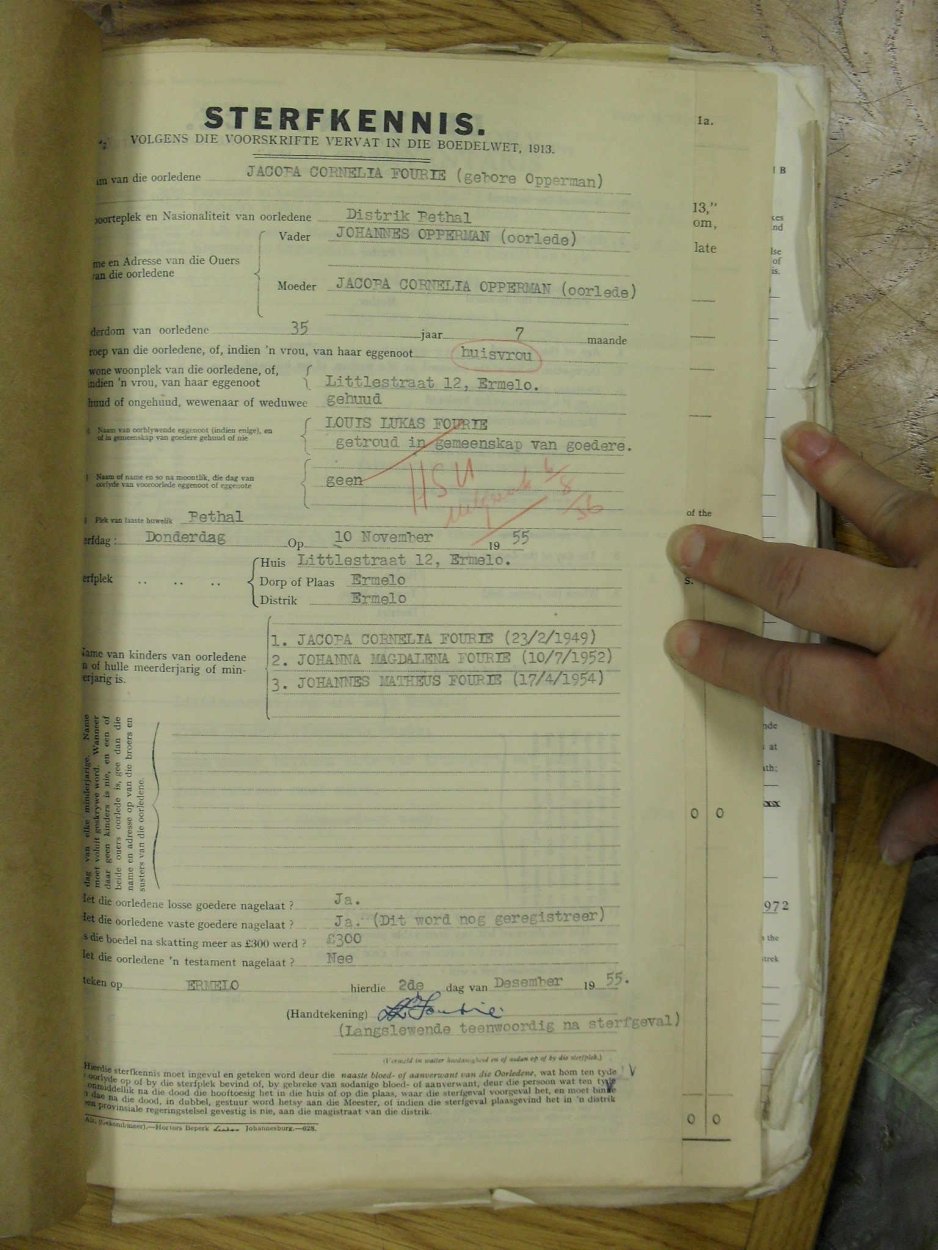 STERFKENNIS.
VOLGENS DIE VOORSKRIFTE VERVAT IN DIE BOEDELWET, 1913.
van die oorledene JACOBA CORNELIA FOURIE (gebore Opperman)
en Nasionaliteit van oorledene Distrik Bethal
Vader JOHANNES OPPERMAN (oorlede)
me en Adresse van die Ouers
van die oorledene
Moeder JACOBA CORNELIA OPPERMAN (oorlede)
derdom van oorledene 35 jaar 7 maande
roep van die oorledene, of, indien 'n vrou, van haar eggenoot huisvrou
wone woonplek van die oorledene, of,
indien 'n vrou, van haar eggenoot Littlestraat 12, Ermelo.
huud of ongehuud, wewenaar of weduwee gehuud
Naam van oorblywende eggenoot (indien enige), en
of in gemeenskap van goedere gehuud of nie
LOUIS LUKAS FOURIE
getroud in gemeenskap van goedere.
Naam of name en so na moontlik, die dag van
oorlyde van vooroorlede eggenoot of eggenote
geen
HSH
6/8/56
Plek van laaste huwelik Bethal
erfdag: Donderdag Op 10 November 19 55
erfplek .. .. .. Huis Littlestraat 12, Ermelo.
Dorp of Plaas Ermelo
Distrik Ermelo
ame van kinders van oorledene
n of hulle meerderjarig of min-
erjarig is.
1. JACOBA CORNELIA FOURIE (23/2/1949)
2. JOHANNA MAGDALENA FOURIE (10/7/1952)
3. JOHANNES MATHEUS FOURIE (17/4/1954)
dag van elke minderjarige. Name
moet voluit geskrywe word. Wanneer
daar geen kinders is nie, en een of
beide ouers oorlede is, gee dan die
name en adresse op van die broers en
susters van die oorledene.
Het die oorledene losse goedere nagelaat ? Ja.
Het die oorledene vaste goedere nagelaat ? Ja. (Dit word nog geregistreer)
s die boedel na skatting meer as £300 werd ? £300
Het die oorledene 'n testament nagelaat ? Nee
teken op ERMELO hierdie 2de dag van Desember 19 55.
(Handtekening) LL Fourie
(Langslewende teenwoordig na sterfgeval)
(Vermeld in watter hoedanigheid en of aldan op of by die sterfplek.)
Hierdie sterfkennis moet ingevul en geteken word deur die naaste bloed- of aanverwant van die Oorledene, wat hom ten tyde
oorlyde op of by die sterfplek bevind of, by gebreke van sodanige bloed- of aanverwant, deur die persoon wat ten tyde
onmiddelik na die dood die hooftoesig het in die huis of op die plaas, waar die sterfgeval voorgeval het, en moet binne
dae na die dood, in dubbel, gestuur word hetsy aan die Meester, of indien die sterfgeval plaasgevind het in 'n distrik
een provinsiale regeringstelsel gevestig is nie, aan die magistraat van die distrik.
Hortors Beperk Johannesburg.—628.
1a.
13,"
om,
late
of the
s.
0 0
0 0
1 B
kes
nd
lse
of
is.
nde
at
ath:
xx
972
the
trek